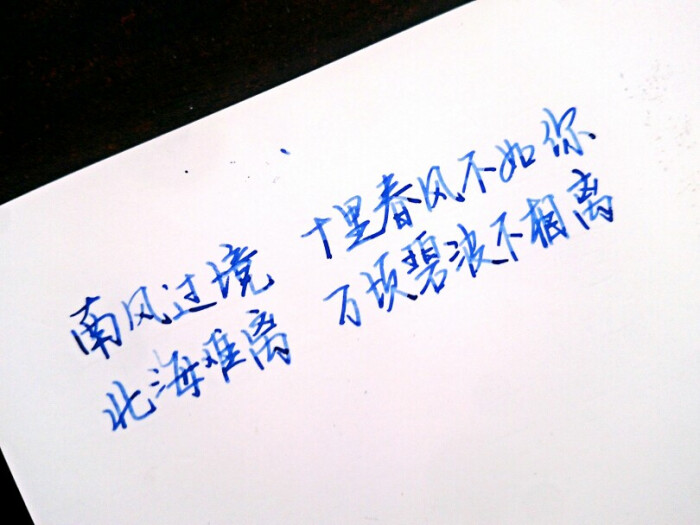 南风过境 十里春风不如你
北海难离 万顷碧波不相离